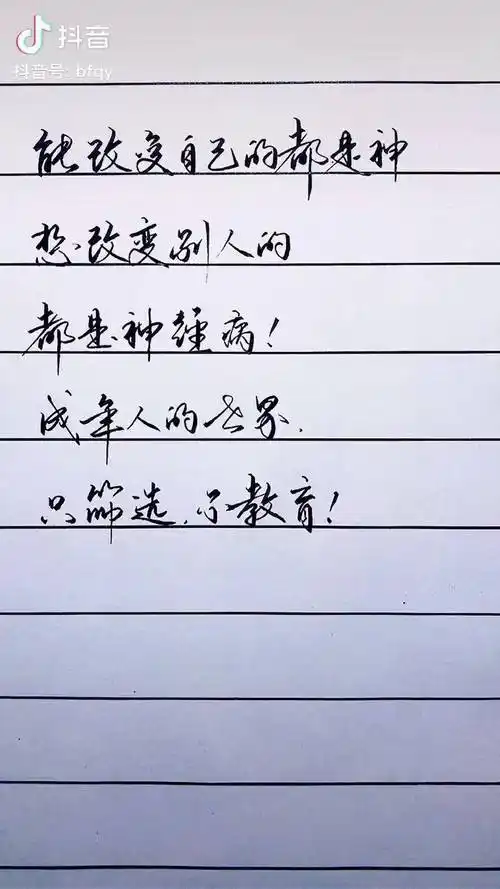 抖音
抖音号: bfqy
能改变自己的都是神
想改变别人的
都是神经病!
成年人的世界.
只筛选,不教育!